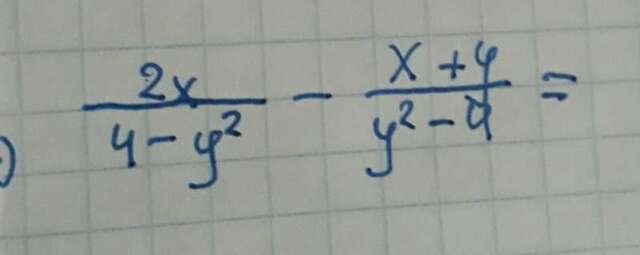 ) 2x/(4 - y²) - (x + 4)/(y² - 4) =